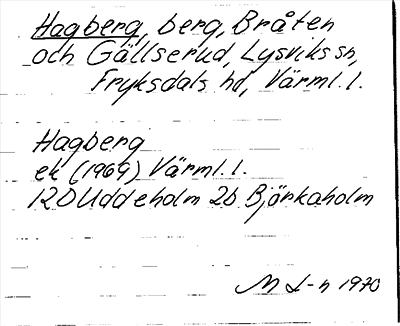 Hagberg, berg, Bråten
och Gällserud, Lysviks sn,
Fryksdals hd, Värml. l.
Hagberg
ek (1969) Värml. l.
12D Uddeholm 2b Björkaholm
M L-n 1970